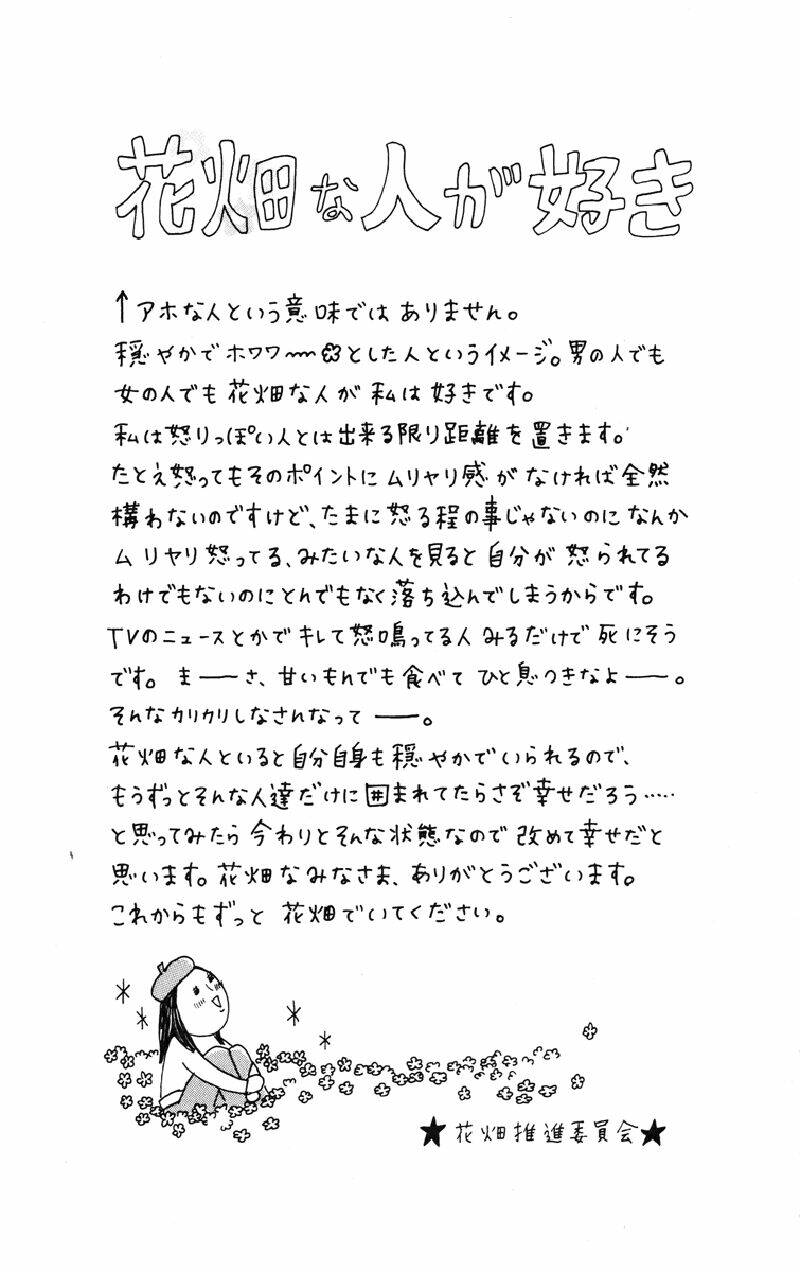 花畑な人が好き
↑アホな人という意味ではありません。
穏やかでホワワ〜〜✿とした人というイメージ。男の人でも
女の人でも花畑な人が私は好きです。
私は怒りっぽい人とは出来る限り距離を置きます。
たとえ怒ってもそのポイントにムリヤリ感がなければ全然
構わないのですけど、たまに怒る程の事じゃないのになんか
ムリヤリ怒ってる、みたいな人を見ると自分が怒られてる
わけでもないのにとんでもなく落ち込んでしまうからです。
TVのニュースとかでキレて怒鳴ってる人みるだけで死にそう
です。まーーさ、甘いもんでも食べてひと息つきなよーー。
そんなカリカリしなさんなってーー。
花畑な人といると自分自身も穏やかでいられるので、
もうずっとそんな人達だけに囲まれてたらさぞ幸せだろう‥‥‥
と思ってみたら今わりとそんな状態なので改めて幸せだと
思います。花畑なみなさま、ありがとうございます。
これからもずっと花畑でいてください。
★花畑推進委員会★